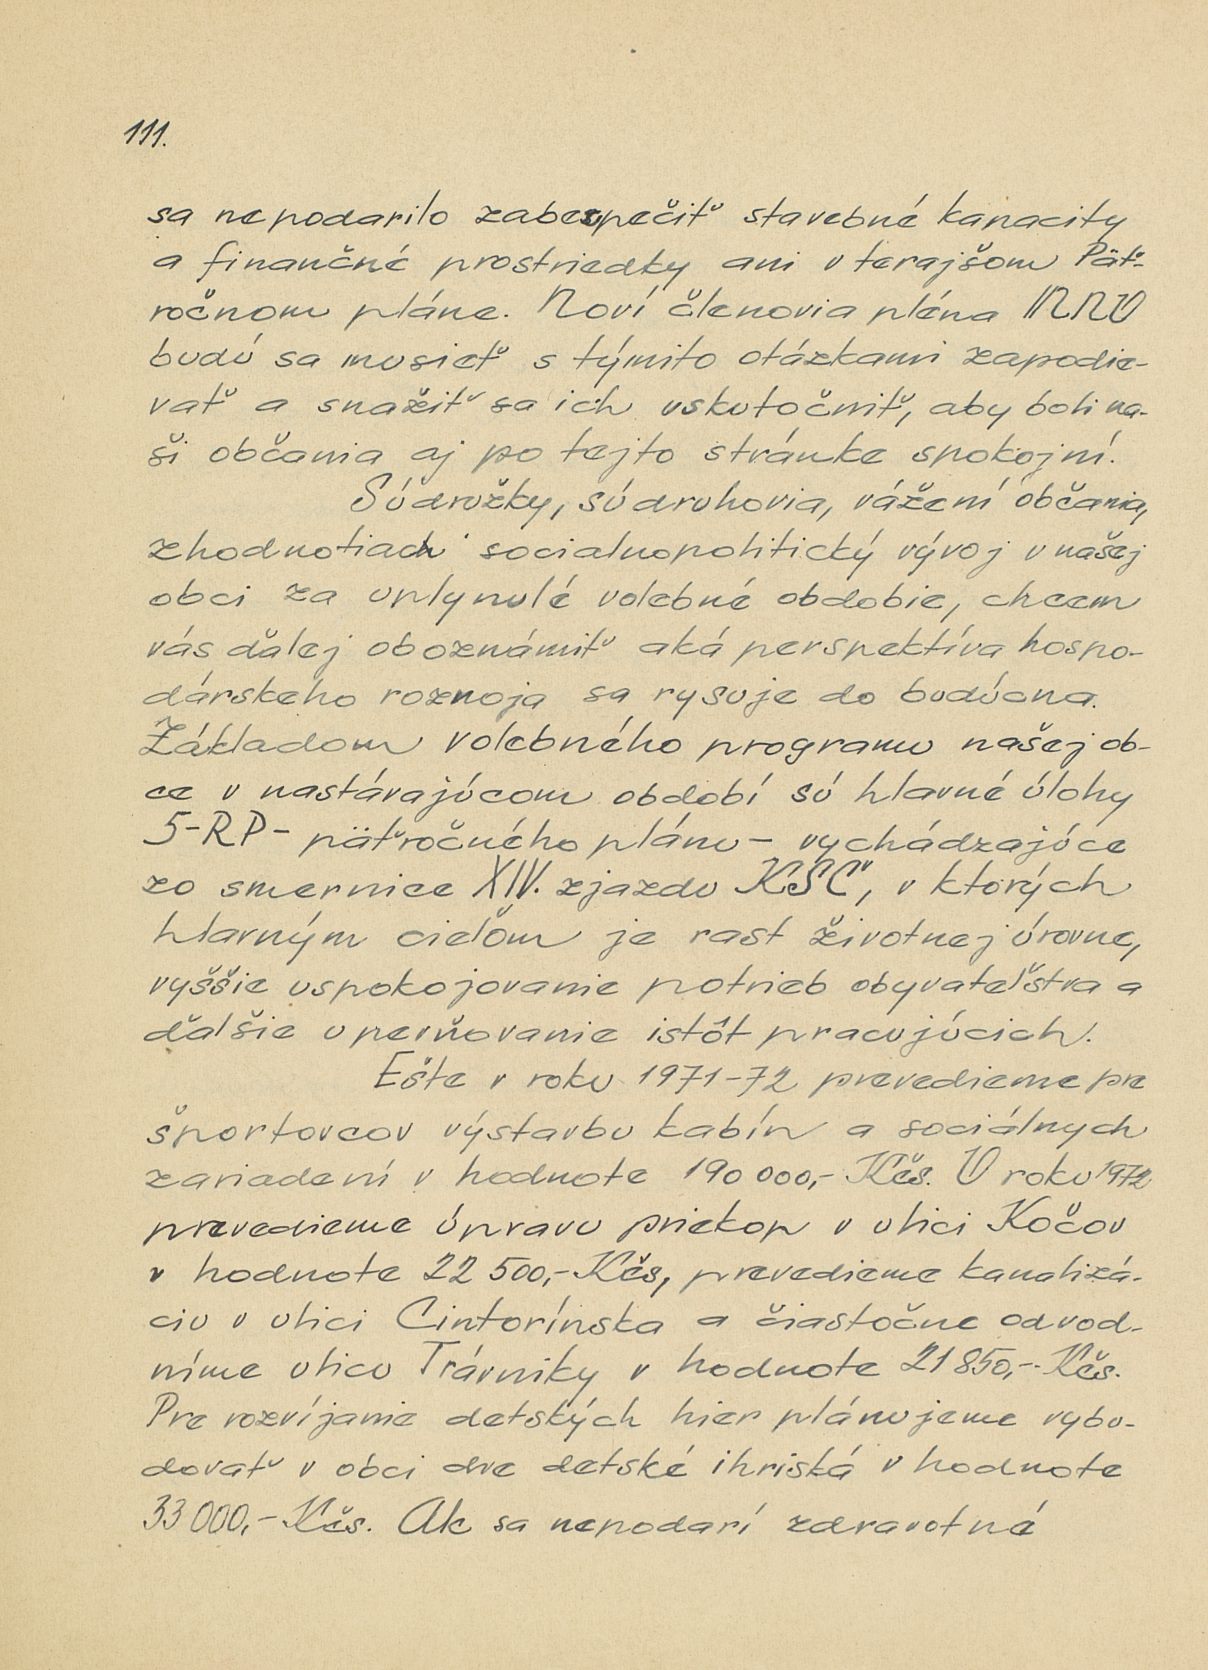 111.
sa nepodarilo zabezpečiť stavebné kapacity
a finančné prostriedky ani v terajšom Päť-
ročnom pláne. Noví členovia pléna MNV
budú sa musieť s týmito otázkami zapodie-
vať a snažiť sa ich uskutočniť, aby boli na-
ši občania aj po tejto stránke spokojní.
Súdružky, súdruhovia, vážení občania,
zhodnotiac socialnopolitický vývoj v našej
obci za uplynulé volebné obdobie, chcem
vás ďalej oboznámiť aká perspektíva hospo-
dárskeho rozvoja sa rysuje do budúcna.
Základom volebného programu našej ob-
ce v nastávajúcom období sú hlavné úlohy
5-RP- päťročného plánu - vychádzajúce
zo smernice XIV. zjazdu KSČ, v ktorých
hlavným cieľom je rast životnej úrovne,
vyššie uspokojovanie potrieb obyvateľstva a
ďalšie upevňovanie istôt pracujúcich.
Ešte v roku 1971-72 prevedieme pre
športovcov výstavbu kabín a sociálnych
zariadení v hodnote 190 000,- Kčs. V roku 1972
prevedieme úpravu priekop v ulici Kočov
v hodnote 22 500,- Kčs, prevedieme kanalizá-
ciu v ulici Cintorínska a čiastočne odvod-
níme ulicu Trávniky v hodnote 21 850,- Kčs.
Pre rozvíjanie detských hier plánujeme vybu-
dovať v obci dve detské ihriská v hodnote
33 000,- Kčs. Ak sa nepodarí zdravotné